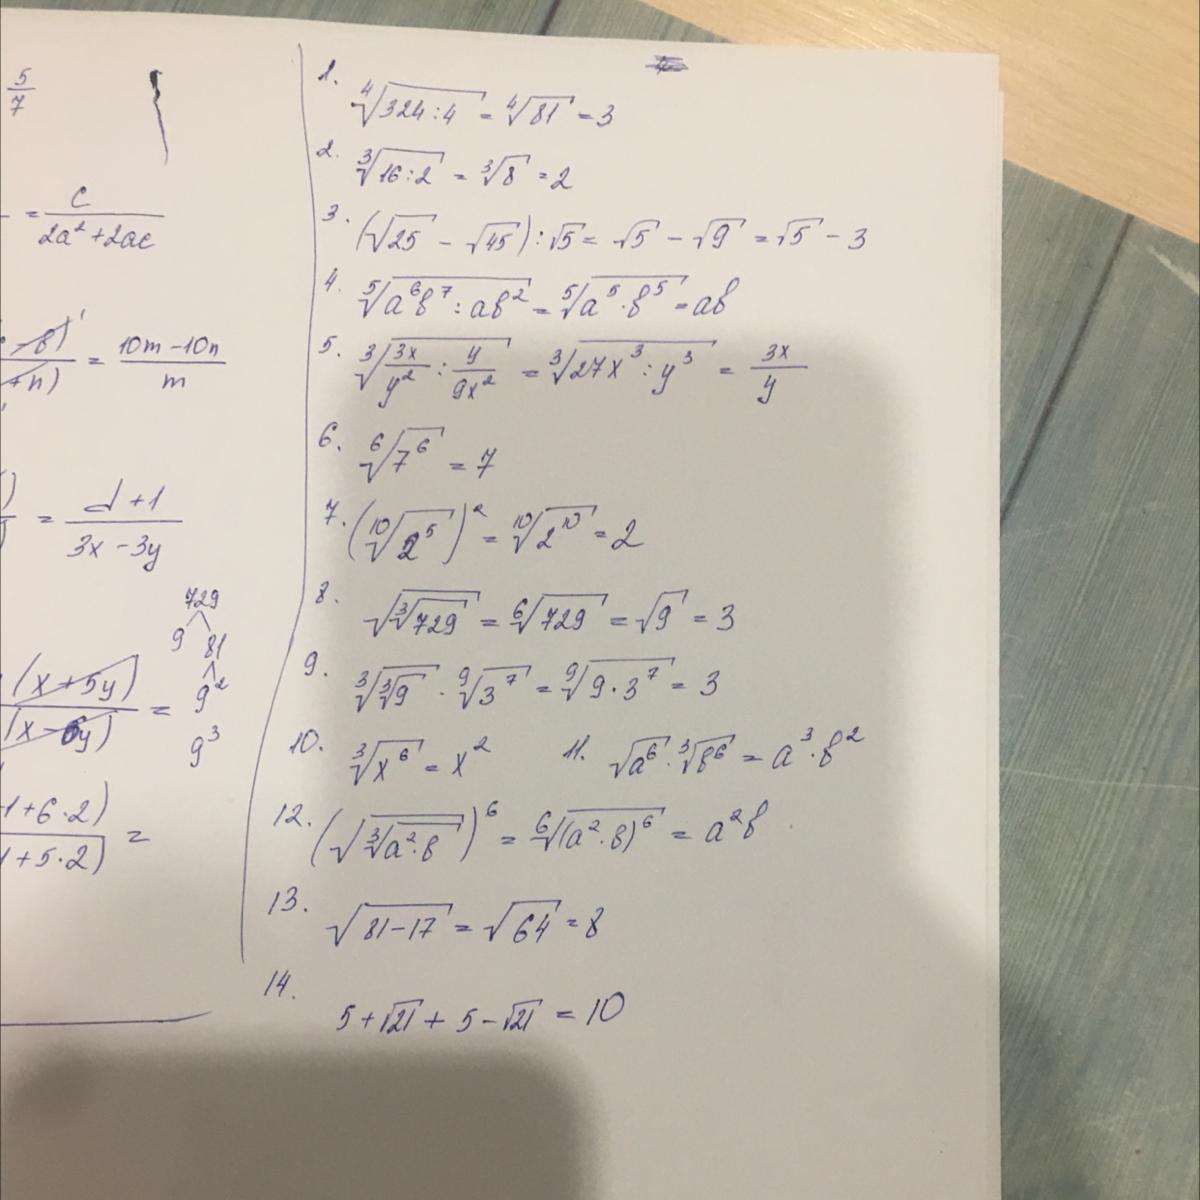 5/7
= c/(2a² + 2ac)
-8)' / +n) = (10m - 10n)/m
) / ) = (d + 1)/(3x - 3y)
729
9 81
9²
9³
(x + 5y) / (x - 6y) =
1 + 6·2) / 1 + 5·2) =
1. ⁴√(324 : 4) = ⁴√81 = 3
2. ³√(16 : 2) = ³√8 = 2
3. (√25 - √45) : √5 = √5 - √9 = √5 - 3
4. ⁵√(a⁶b⁷ : ab²) = ⁵√(a⁵·b⁵) = ab
5. ³√(3x/y² : y/9x²) = ³√(27x³ : y³) = 3x/y
6. ⁶√(7⁶) = 7
7. (¹⁰√(2⁵))² = ¹⁰√(2¹⁰) = 2
8. √(³√729) = ⁶√729 = √9 = 3
9. ³√(³√9) · ⁹√(3⁷) = ⁹√(9·3⁷) = 3
10. ³√(x⁶) = x² 11. √(a⁶) · ³√(b⁶) = a³·b²
12. (√(³√(a²·b)))⁶ = ⁶√((a²·b)⁶) = a²b
13. √(81 - 17) = √64 = 8
14.
5 + √21 + 5 - √21 = 10